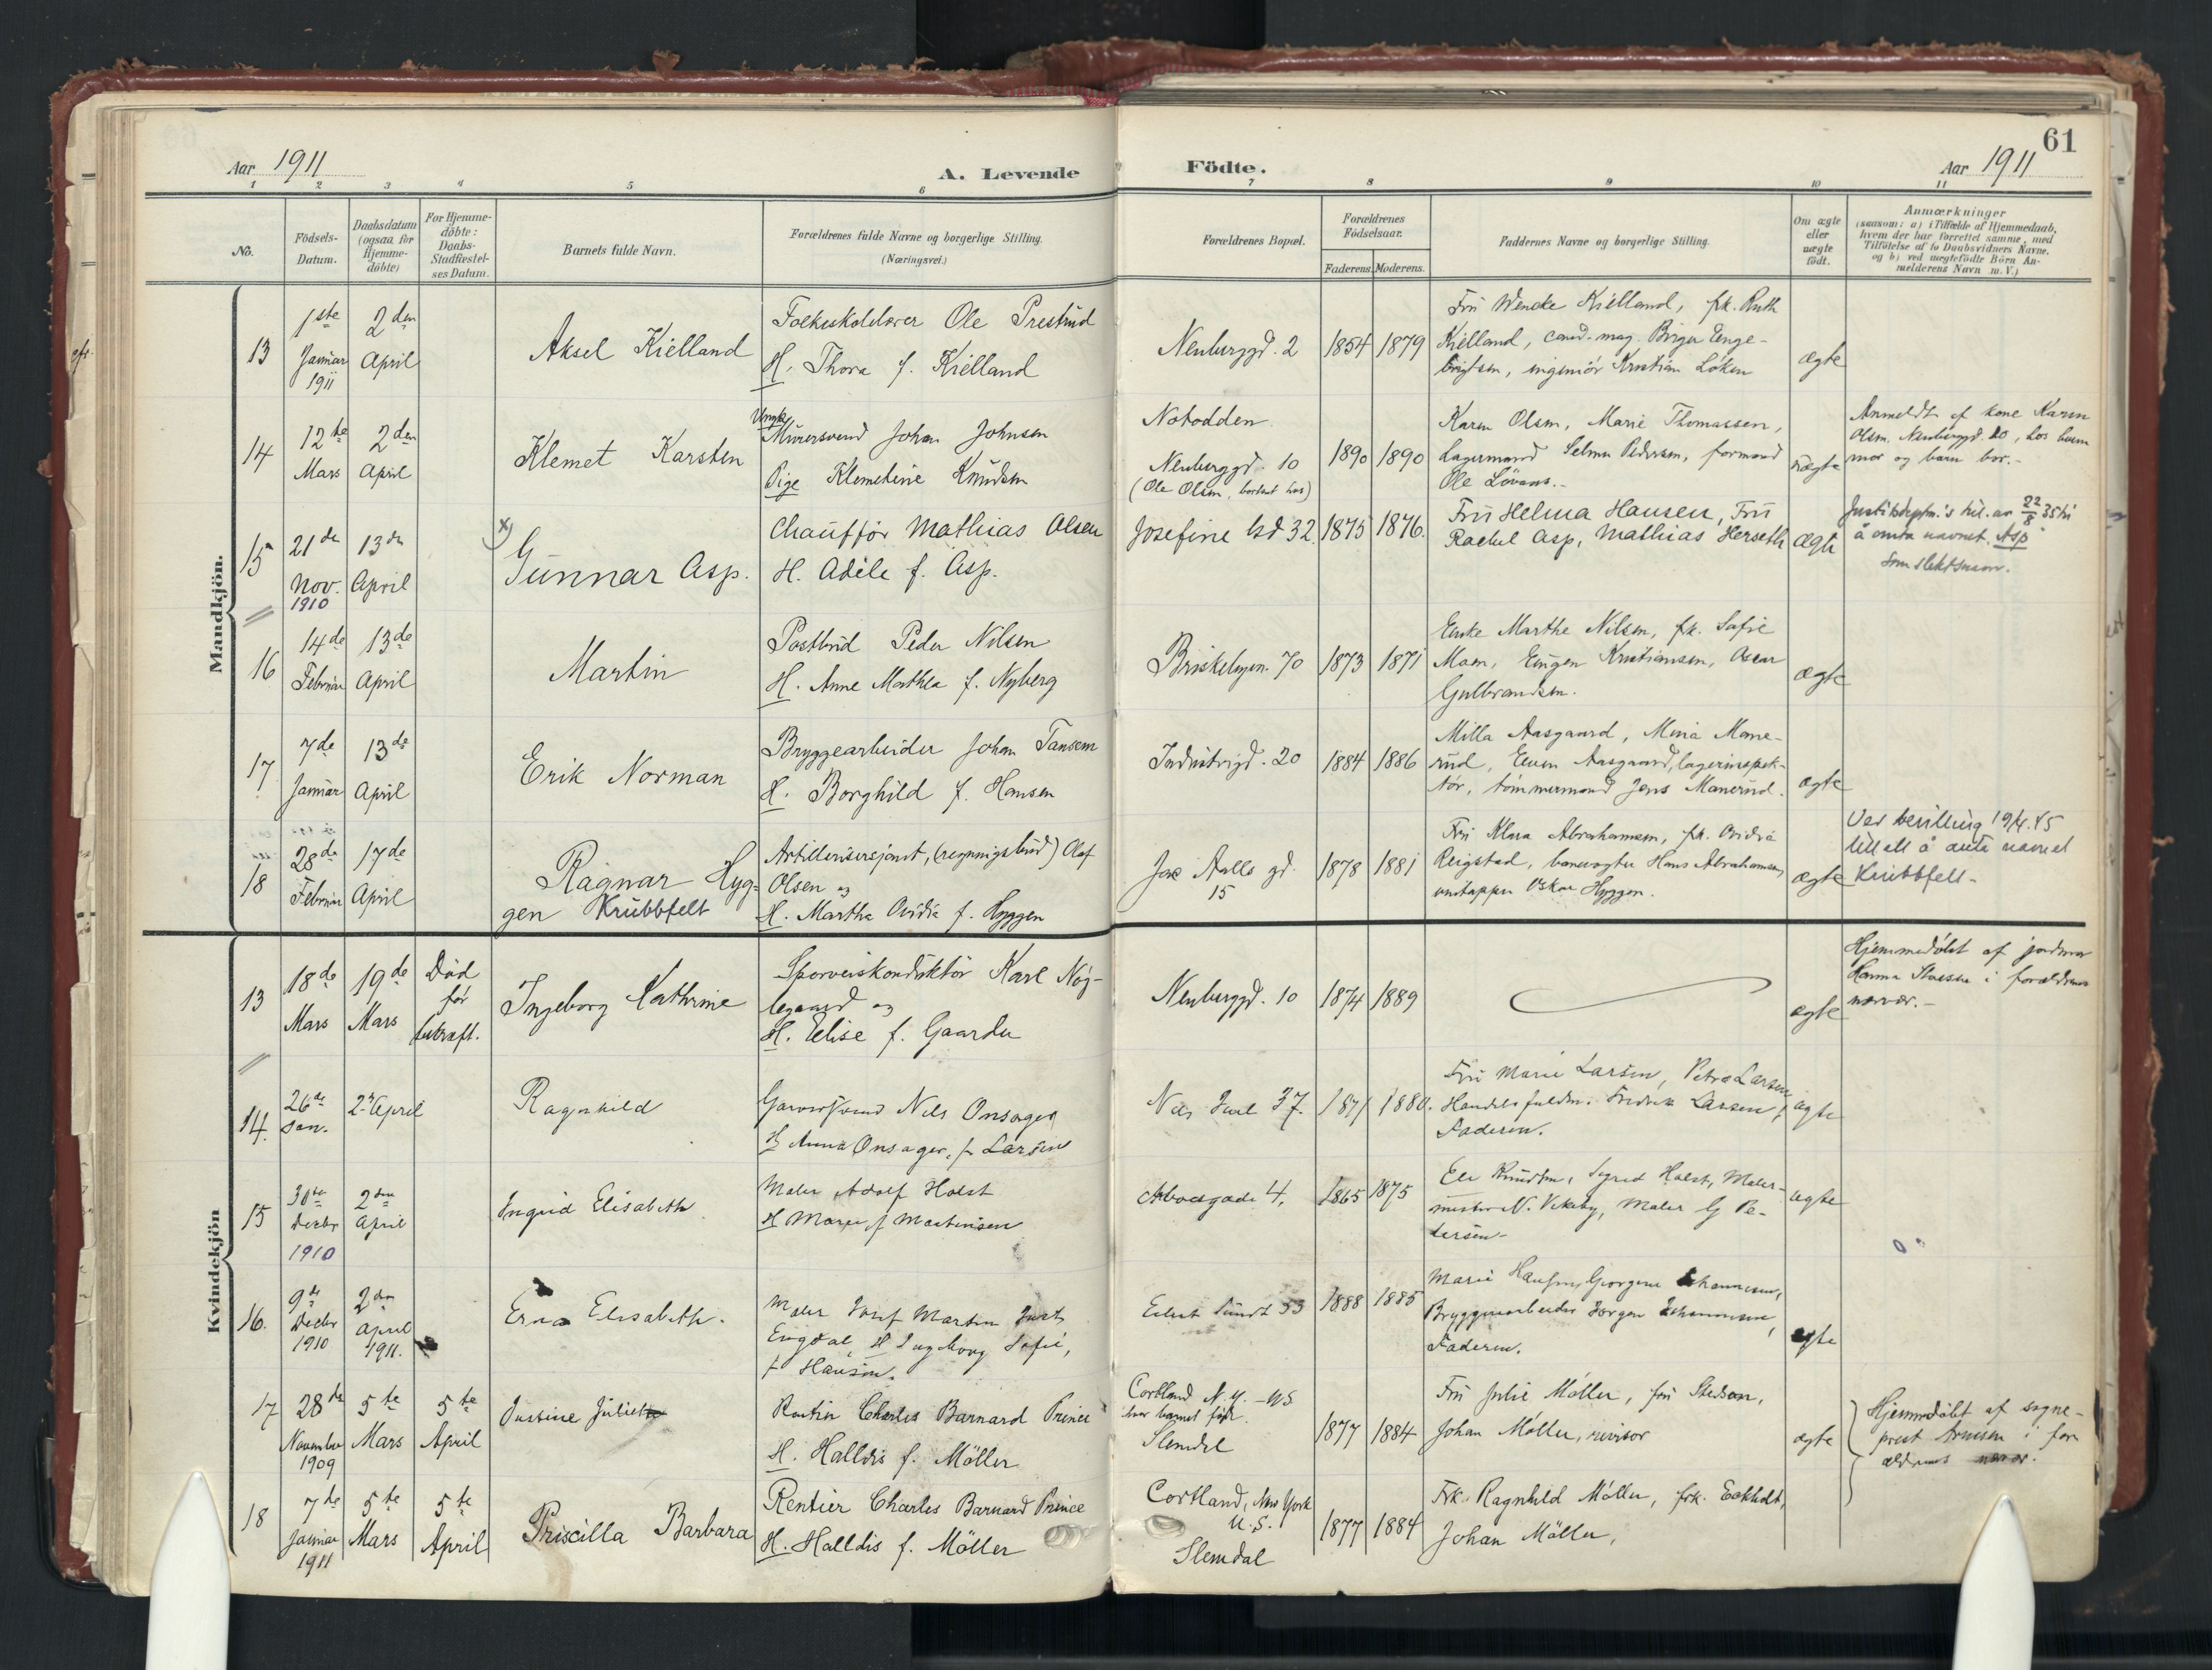 61
Aar 1911
A. Levende
Födte.
Aar 1911
1 2 3 4 5 6 7 8 9 10 11
No.
Födsels-
Datum.
Daabsdatum
(ogsaa for
Hjemme-
döbte)
For Hjemme-
döbte:
Daabs-
Stadfæstel-
ses Datum.
Barnets fulde Navn.
Forældrenes fulde Navne og borgerlige Stilling.
(Næringsvei.)
Forældrenes Bopæl.
Forældrenes
Födselsaar.
Faderens. Moderens.
Faddernes Navne og borgerlige Stilling.
Om ægte
eller
uægte
födt.
Anmærkninger
(saasom: a) i Tilfælde af Hjemmedaab,
hvem der har forrettet samme, med
Tilföielse af to Daabsvidners Navne,
og b) ved uægtefödte Börn An-
melderens Navn m. V.)
Mandkjön.
13
1ste
Januar
1911
2den
April
Aksel Kielland
Folkeskolelærer Ole Prestrud
H. Thora f. Kielland
Neuberggd. 2
1854 1879
Fru Wencke Kielland, frk. Ruth
Kielland, cand. mag. Birger Enge-
brigtsen, ingeniör Kristian Löken
ægte
14
12te
Mars
2den
April
Klemet Karsten
Ungk.
Murersvend Johan Johnsen
Pige Klemetine Knudsen
Notodden
Neuberggd. 10
(Ole Olsen, bortsat hos)
1890 1890
Karen Olsen, Marie Thomassen,
Lagermand Selmer Pedersen, formand
Ole Lövaas.-
uægte
Anmeldt af kone Karen
Olsen, Neuberggd. 10, hos hvem
mor og barn bor.-
15
21de
Nov.
1910
13de
April
x)
Gunnar Asp.
Chauffför Mathias Olsen
H. Adèle f. Asp.
Josefine gd 32.
1875 1876.
Fru Helma Hansen, Fru
Rachel Asp, Mathias Herseth
ægte
Justisdeptm.'s til. av 22/8 35 til
å anta navnet Asp
som slektsnavn.
16
14de
Februar
13de
April
Martin
Postbud Peder Nilsen
H. Anne Marthea f. Nyberg
Briskebyvn. 70
1873 1871
Enke Marthe Nilsen, frk. Sofie
Moen, Eugen Kristiansen, Oscar
Gulbrandsen.
ægte
17
7de
Januar
13de
April
Erik Norman
Bryggearbeider Johan Tansem
H. Borghild f. Hansen
Industrigd. 20
1884 1886
Milla Aasgaard, Mina Mane-
rud, Even Aasgaard, lagerinspek-
tör, tömmermand Jens Manerud.
ægte
18
28de
Februar
17de
April
Ragnar Hyg-
gen Krubbfelt
Artillerisersjant, (regningsbud) Olaf
Olsen og
H. Martha Ovidia f. Hyggen
Jac Aalls gd.
15
1878 1881
Fru Klara Abrahamsen, frk. Ovidia
Reigstad, banevogter Hans Abrahamsen,
vintapper Oskar Hyggen.
ægte
Ved bevilling 19/4.45
tillatt å anta navnet
Krubbfelt-
Kvindekjön
13
18de
Mars
19de
Mars
Död
för
bekræft.
Ingeborg Kathrine
Sporveiskonduktör Karl Nög-
legaard og
H. Elise f. Gaarder
Neuberggd. 10
1874 1889
ægte
Hjemmedöbt af jordmor
Hanna i forældrenes
nærvær.-
14.
26de
Jan.
2n April
Ragnhild
Garversvend Nils Onsager
H Anna Onsager, f. Larsen
Nils Juel 37.
1871 1880.
Fru Marie Larsen, Petra Larsen,
Handelsfuldm. Fredrik Larsen,
Faderen.
ægte
15
30te
Decbr
1910
2den
April
Ingrid Elisabeth
Maler Adolf Holst
H Maren f Martinsen
4.
1865 1875
Knudsen, Sigrid Holst, Maler-
mester N. Vikeby, Maler G Pe-
dersen-
ægte
16.
9de
Decbr
1910
2den
April
1911.
Erna Elisabeth.
Maler Josef Martin
Engdal, H Ingeborg Sofie,
f. Hansen.
Eilert Sundt 53
1888 1885
Marie Hansen, Georgine Johannesen,
Bryggearbeider Jörgen Johannesen,
Faderen.
ægte
17
28de
November
1909
5te
Mars
5te
April
Justine Juliette
Rentier Charles Barnard Prince
H. Halldis f. Möller
Cortland N.Y. - US
hvor barnet födt.
Slemdal
1877 1884
Fru Julie Möller, fru Stedson,
Johan Möller, revisor
ægte
Hjemmedöbt af sogne-
prest Arnesen i for-
ældrenes nærvær.
18
7de
Januar
1911
5te
Mars
5te
April
Priscilla Barbara
Rentier Charles Barnard Prince
H. Halldis f. Möller
Cortland, New York
U.S.
Slemdal
1877 1884
Frk. Ragnhild Möller, frk. Eckholdt,
Johan Möller,